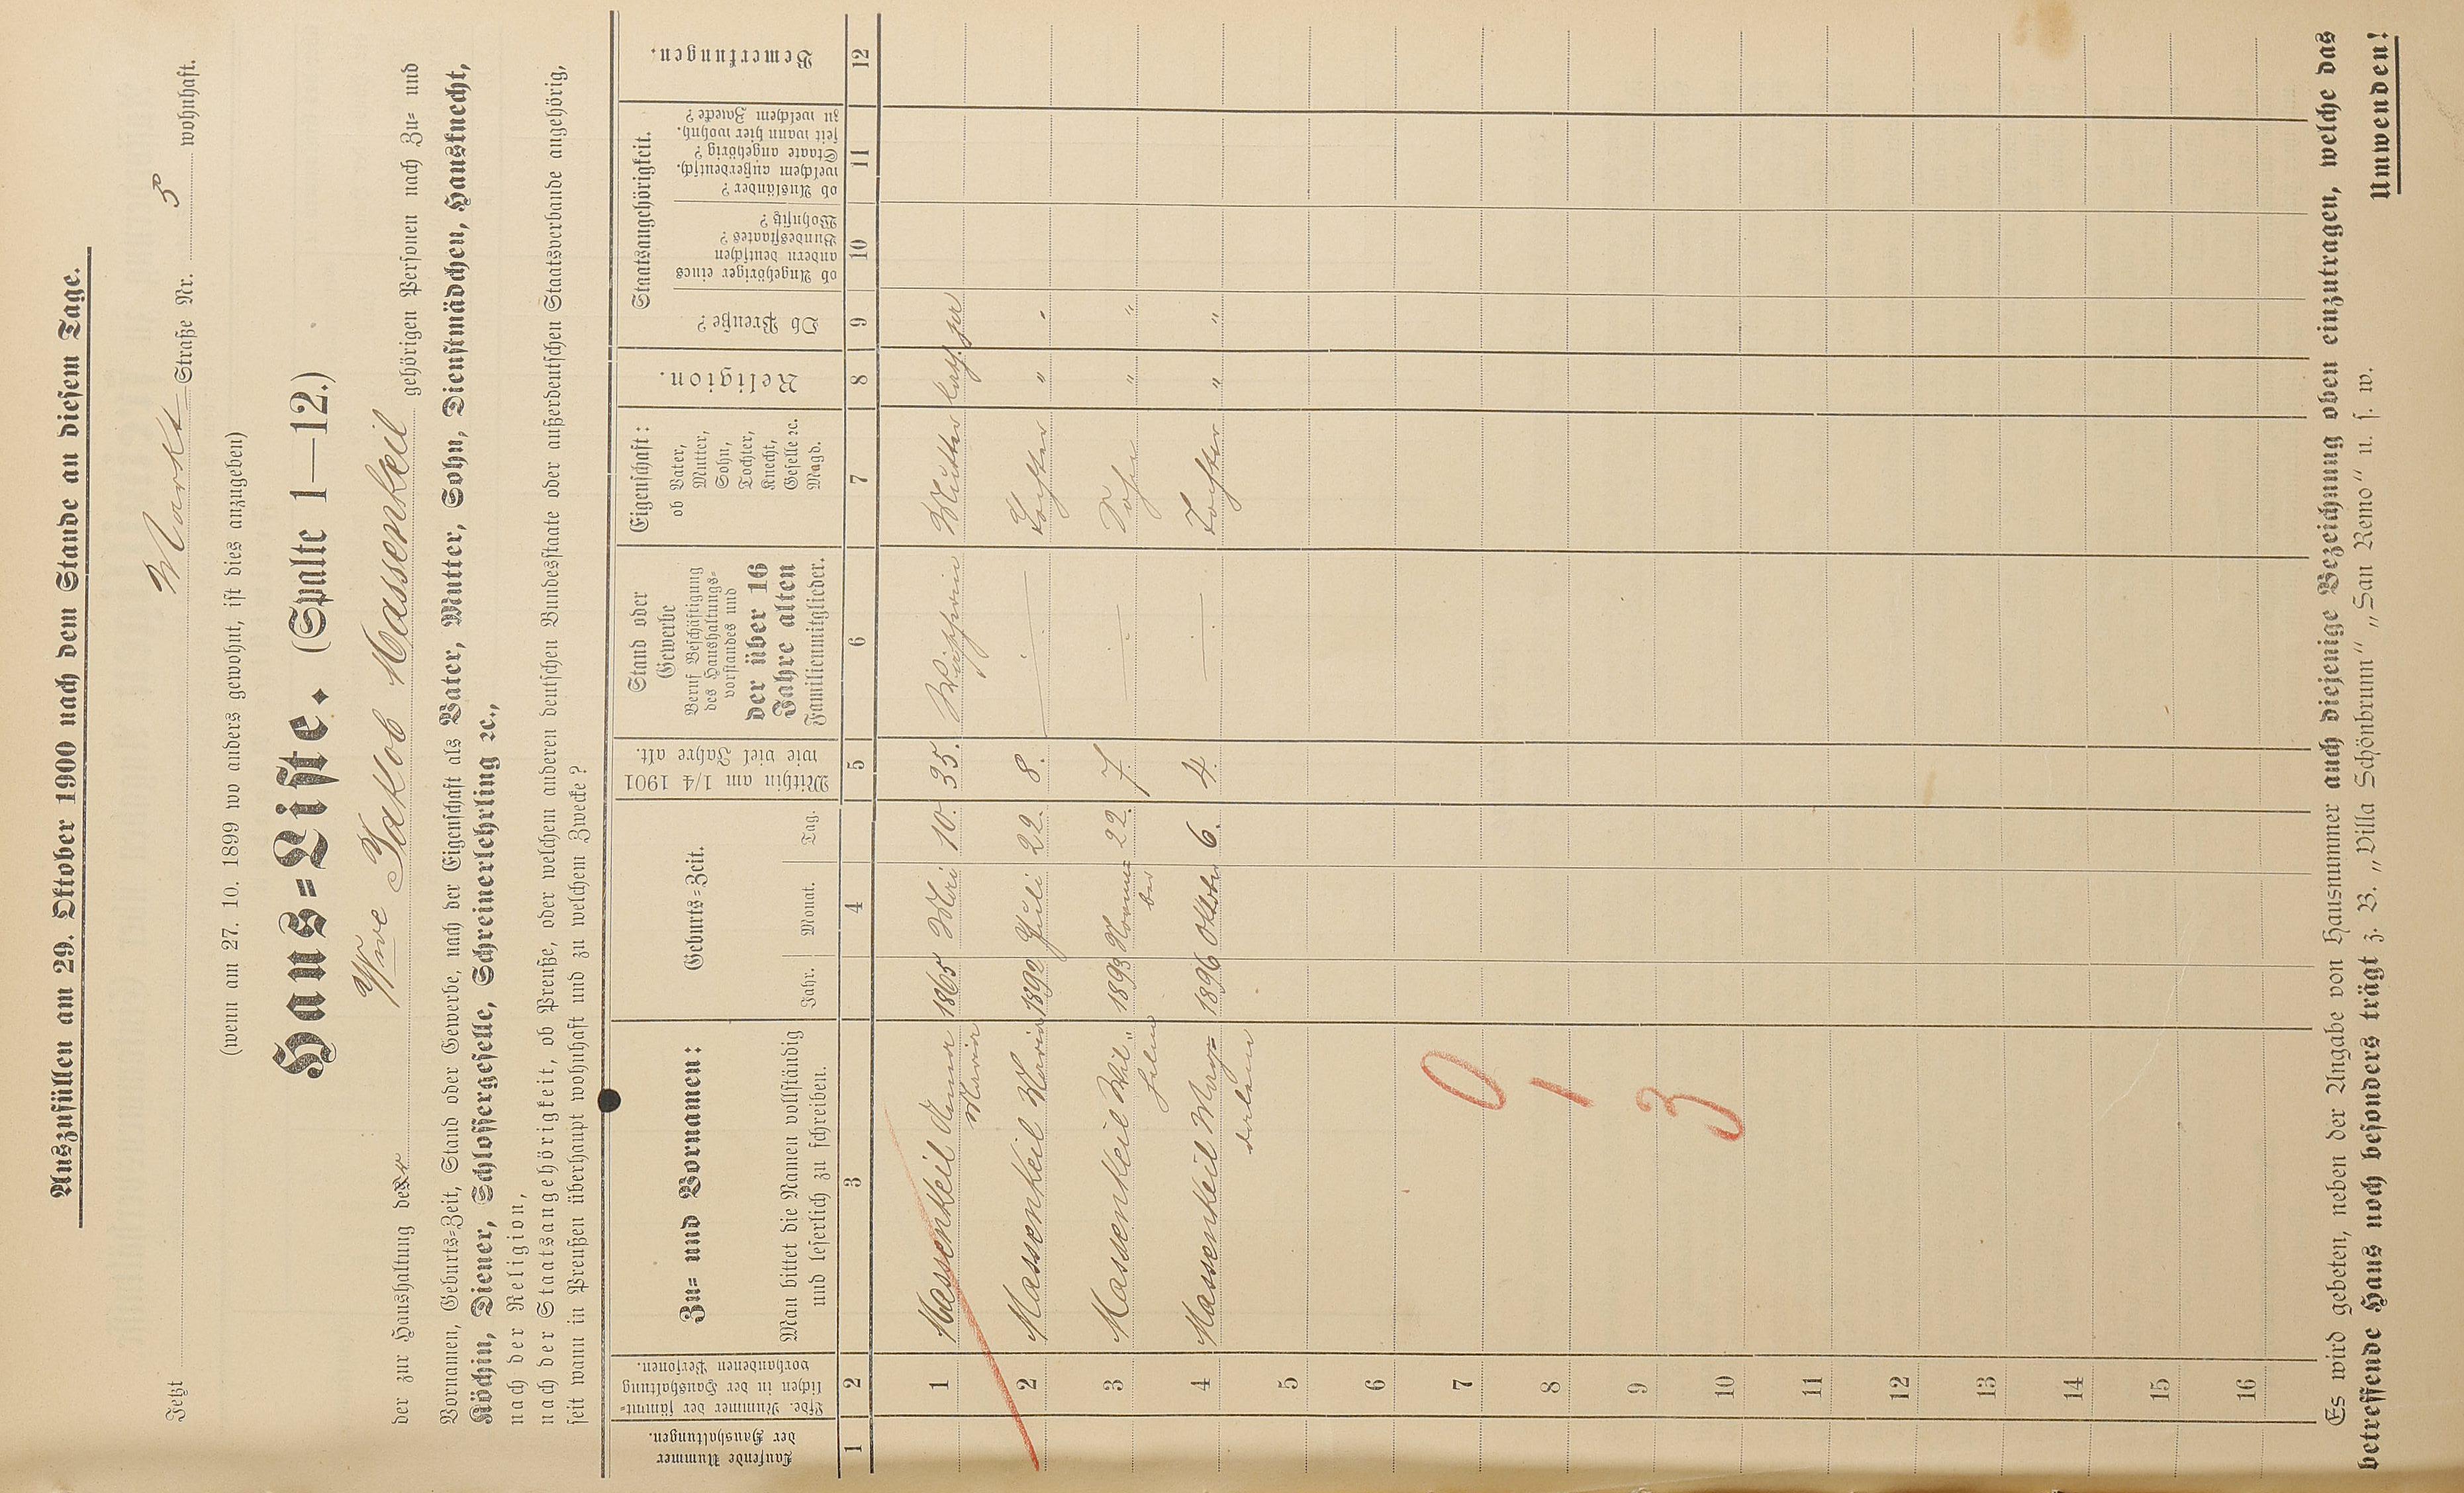 Auszufüllen am 29. Oktober 1900 nach dem Stande an diesem Tage.
Jetzt Markt Straße Nr. 5 wohnhaft.
(wenn am 27. 10. 1899 wo anders gewohnt, ist dies anzugeben)
Haus=Liste. (Spalte 1—12.)
der zur Haushaltung der Wwe Jakob Massenkeil gehörigen Personen nach Zu= und
Vornamen, Geburts=Zeit, Stand oder Gewerbe, nach der Eigenschaft als Vater, Mutter, Sohn, Dienstmädchen, Hausknecht,
Köchin, Diener, Schlossergeselle, Schreinerlehrling ꝛc.,
nach der Religion,
nach der Staatsangehörigkeit, ob Preuße, oder welchem anderen deutschen Bundesstaate oder außerdeutschen Staatsverbande angehörig,
seit wann in Preußen überhaupt wohnhaft und zu welchem Zwecke?
Laufende Nummer
der Haushaltungen.
Lfde. Nummer der sämmt=
lichen in der Haushaltung
vorhandenen Personen.
Zu= und Vornamen:
Man bittet die Namen vollständig
und leserlich zu schreiben.
Geburts=Zeit.
Jahr. Monat. Tag.
Mithin am 1/4 1901
wie viel Jahre alt.
Stand oder
Gewerbe
Beruf Beschäftigung
des Haushaltungs=
vorstandes und
der über 16
Jahre alten
Familienmitglieder.
Eigenschaft:
ob Vater,
Mutter,
Sohn,
Tochter,
Knecht,
Geselle ꝛc.
Magd.
Religion.
Staatsangehörigkeit.
Ob Preuße?
ob Angehöriger eines
andern deutschen
Bundesstaates?
Wohnsitz?
ob Ausländer?
welchem außerdeutsch.
Staate angehörig?
seit wann hier wohnh.
zu welchem Zwecke?
Bemerkungen.
1 2 3 4 5 6 7 8 9 10 11 12
1 Massenkeil Anna 1865 Mai 10. 35. Mutter kath. ja
Maria
2 Massenkeil Maria 1892 Juli 22. 8. Tochter " "
3 Massenkeil Wil= 1893 Novem= 22. 7. Sohn " "
helm ber
4 Massenkeil Mag= 1896 Oktober 6. 4. Tochter " "
dalena
5
6
7 0
8 1
9 3
10
11
12
13
14
15
16
Es wird gebeten, neben der Angabe von Hausnummer auch diejenige Bezeichnung oben einzutragen, welche das
betreffende Haus noch besonders trägt z. B. „Villa Schönbrunn" „San Remo" u. s. w.
Umwenden!